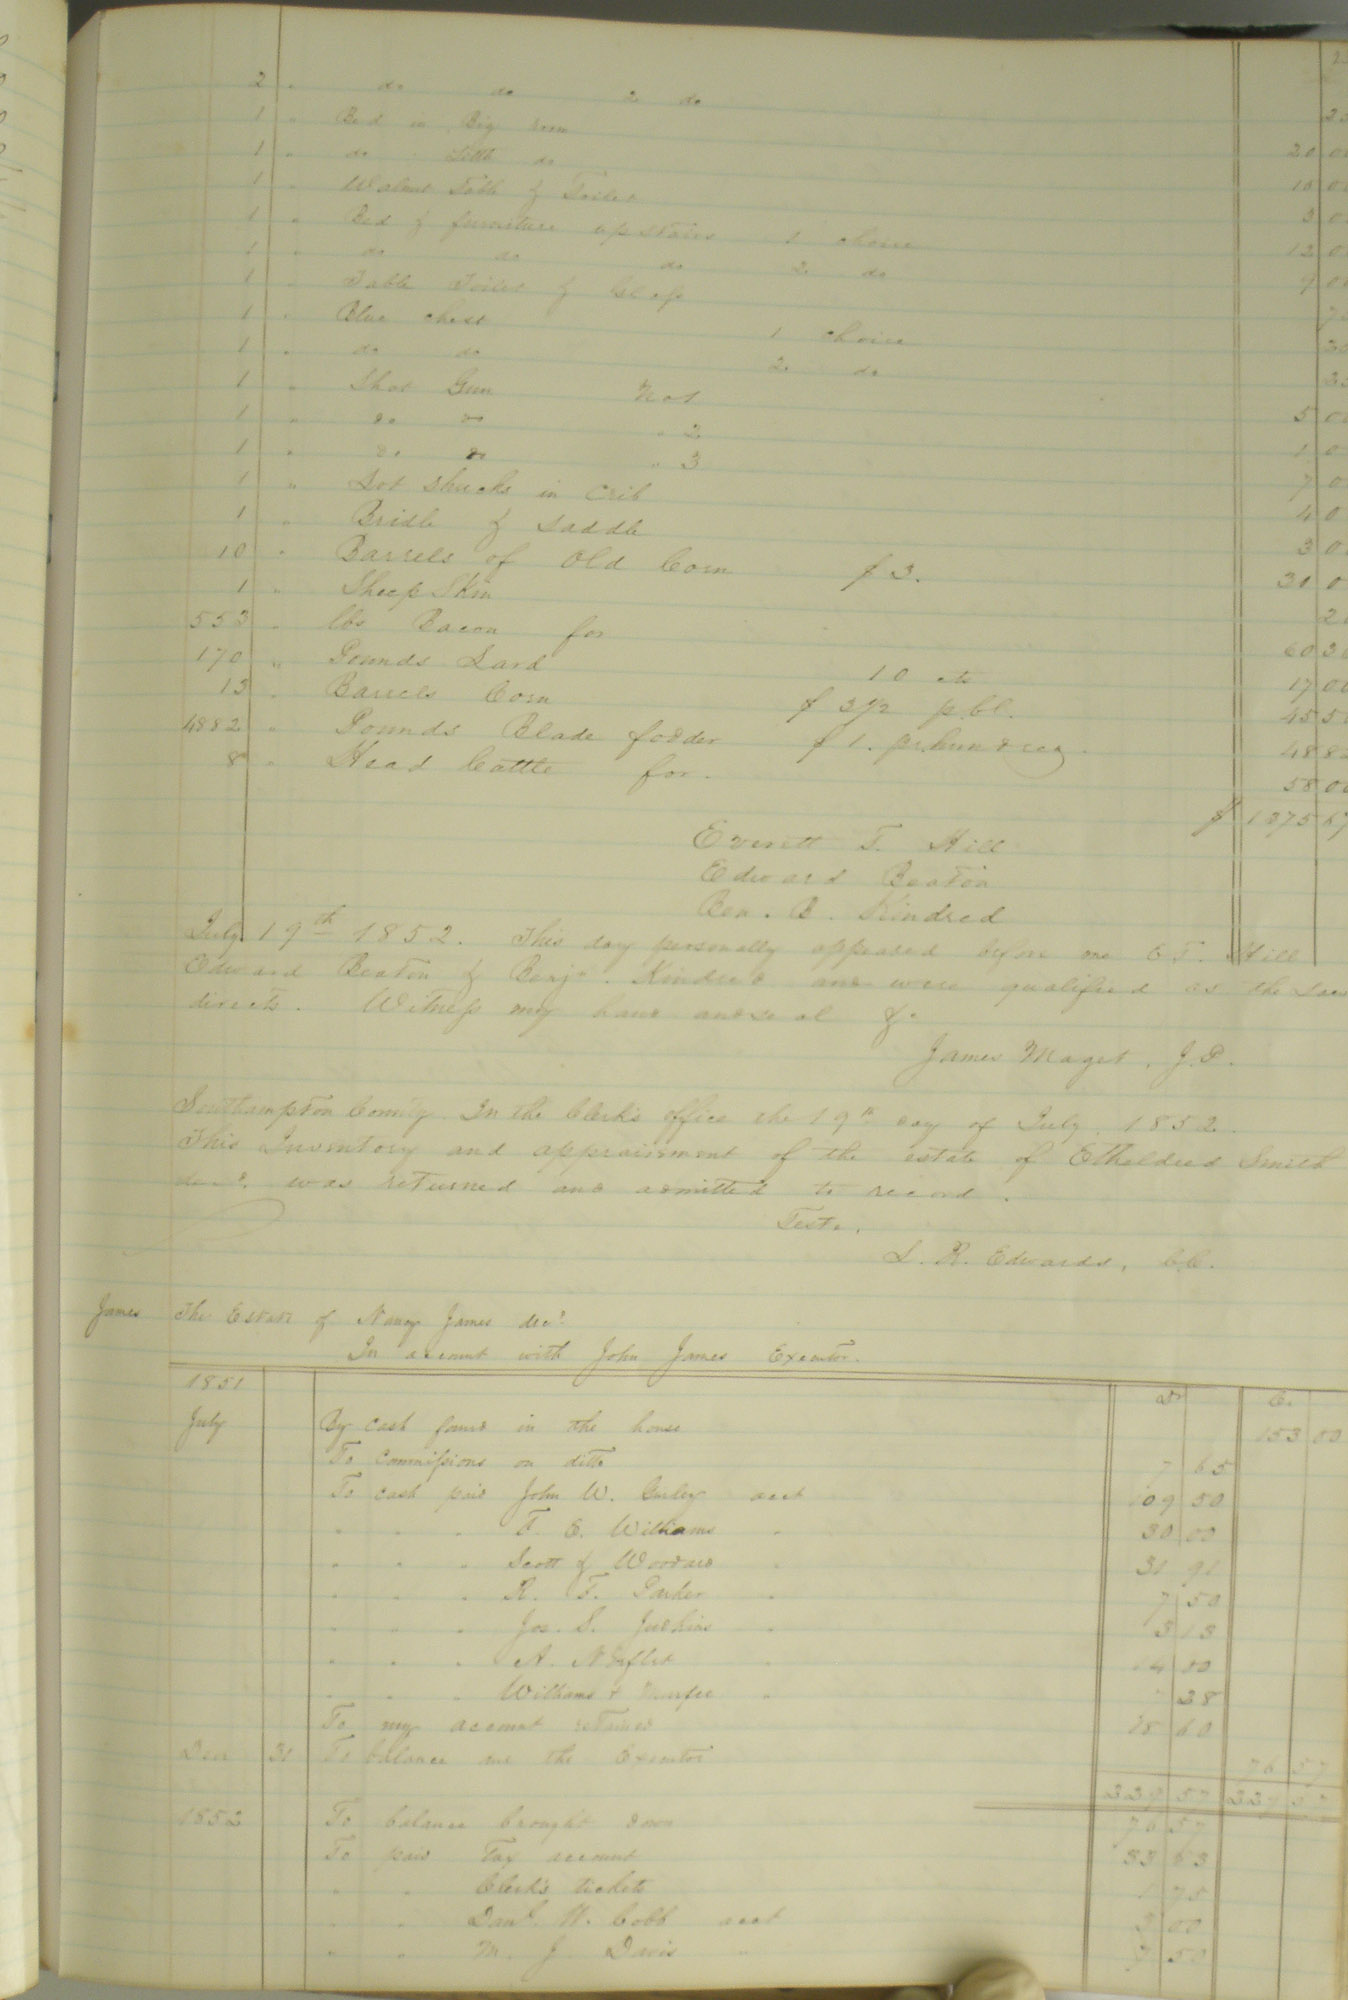 2 " do do 2 do
1 " Bed in Big room 20 00
1 " do Little do 10 00
1 " Walnut Table & Toilet 3 00
1 " Bed & furniture up stairs 1 choice 12 00
1 " do do do 2 do
1 " Table Toilet & Glass
1 " Blue chest 1 choice
1 " do do 2 do
1 " Shot Gun No 1 5 00
1 " do do " 2
1 " do do " 3
1 " Lot shucks in crib
1 " Bridle & saddle 3 00
10 " Barrels of Old Corn $3. 30 0
1 " Sheep Skin
553 " lbs Bacon for 60
170 " Pounds Lard 10 cts 17 00
13 " Barrels Corn $3 1/2 p.bl. 45 5
4882 " Pounds Blade fodder $1. pr. hundred 48 82
8 " Head Cattle for. 58 00
$ 1375 67
Everett T. Hill
Edward Beaton
Ben. B. Kindred
July 19th 1852. This day personally appeared before me E T. Hill
Edward Beaton & Benjn. Kindred and were qualified as the law
directs. Witness my hand and seal &c
James Maget, J.P.
Southampton County In the Clerk's office the 19th day of July 1852.
This Inventory and appraisement of the estate of Etheldred Smith
decd. was returned and admitted to record.
Teste.
L. R. Edwards, C.C.
James The Estate of Nancy James decd
In account with John James Executor.
1851 Dr Cr.
July By cash found in the house 153 00
To commissions on ditto 7 65
To cash paid John W. Gurley acct 109 50
" " " T. E. Williams " 30 00
" " " Scott & Woodard " 31 91
" " " R. T. Parker " 7 50
" " " Jos. S. Judkins " 3 13
" " " A. Norflet " 14 00
" " " Williams & " 38
To my account retained 18 60
Decr 31 To balance due the Executor 76 57
229 57 229 57
1852 To balance brought down 76 57
To paid Tax account 33 83
" " Clerk's tickets 1 75
" " Danl. W. Cobb acct 3 00
" " M. J. Davis " 50